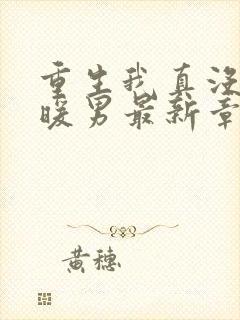 重生我真没
暖男最新章
黄穗